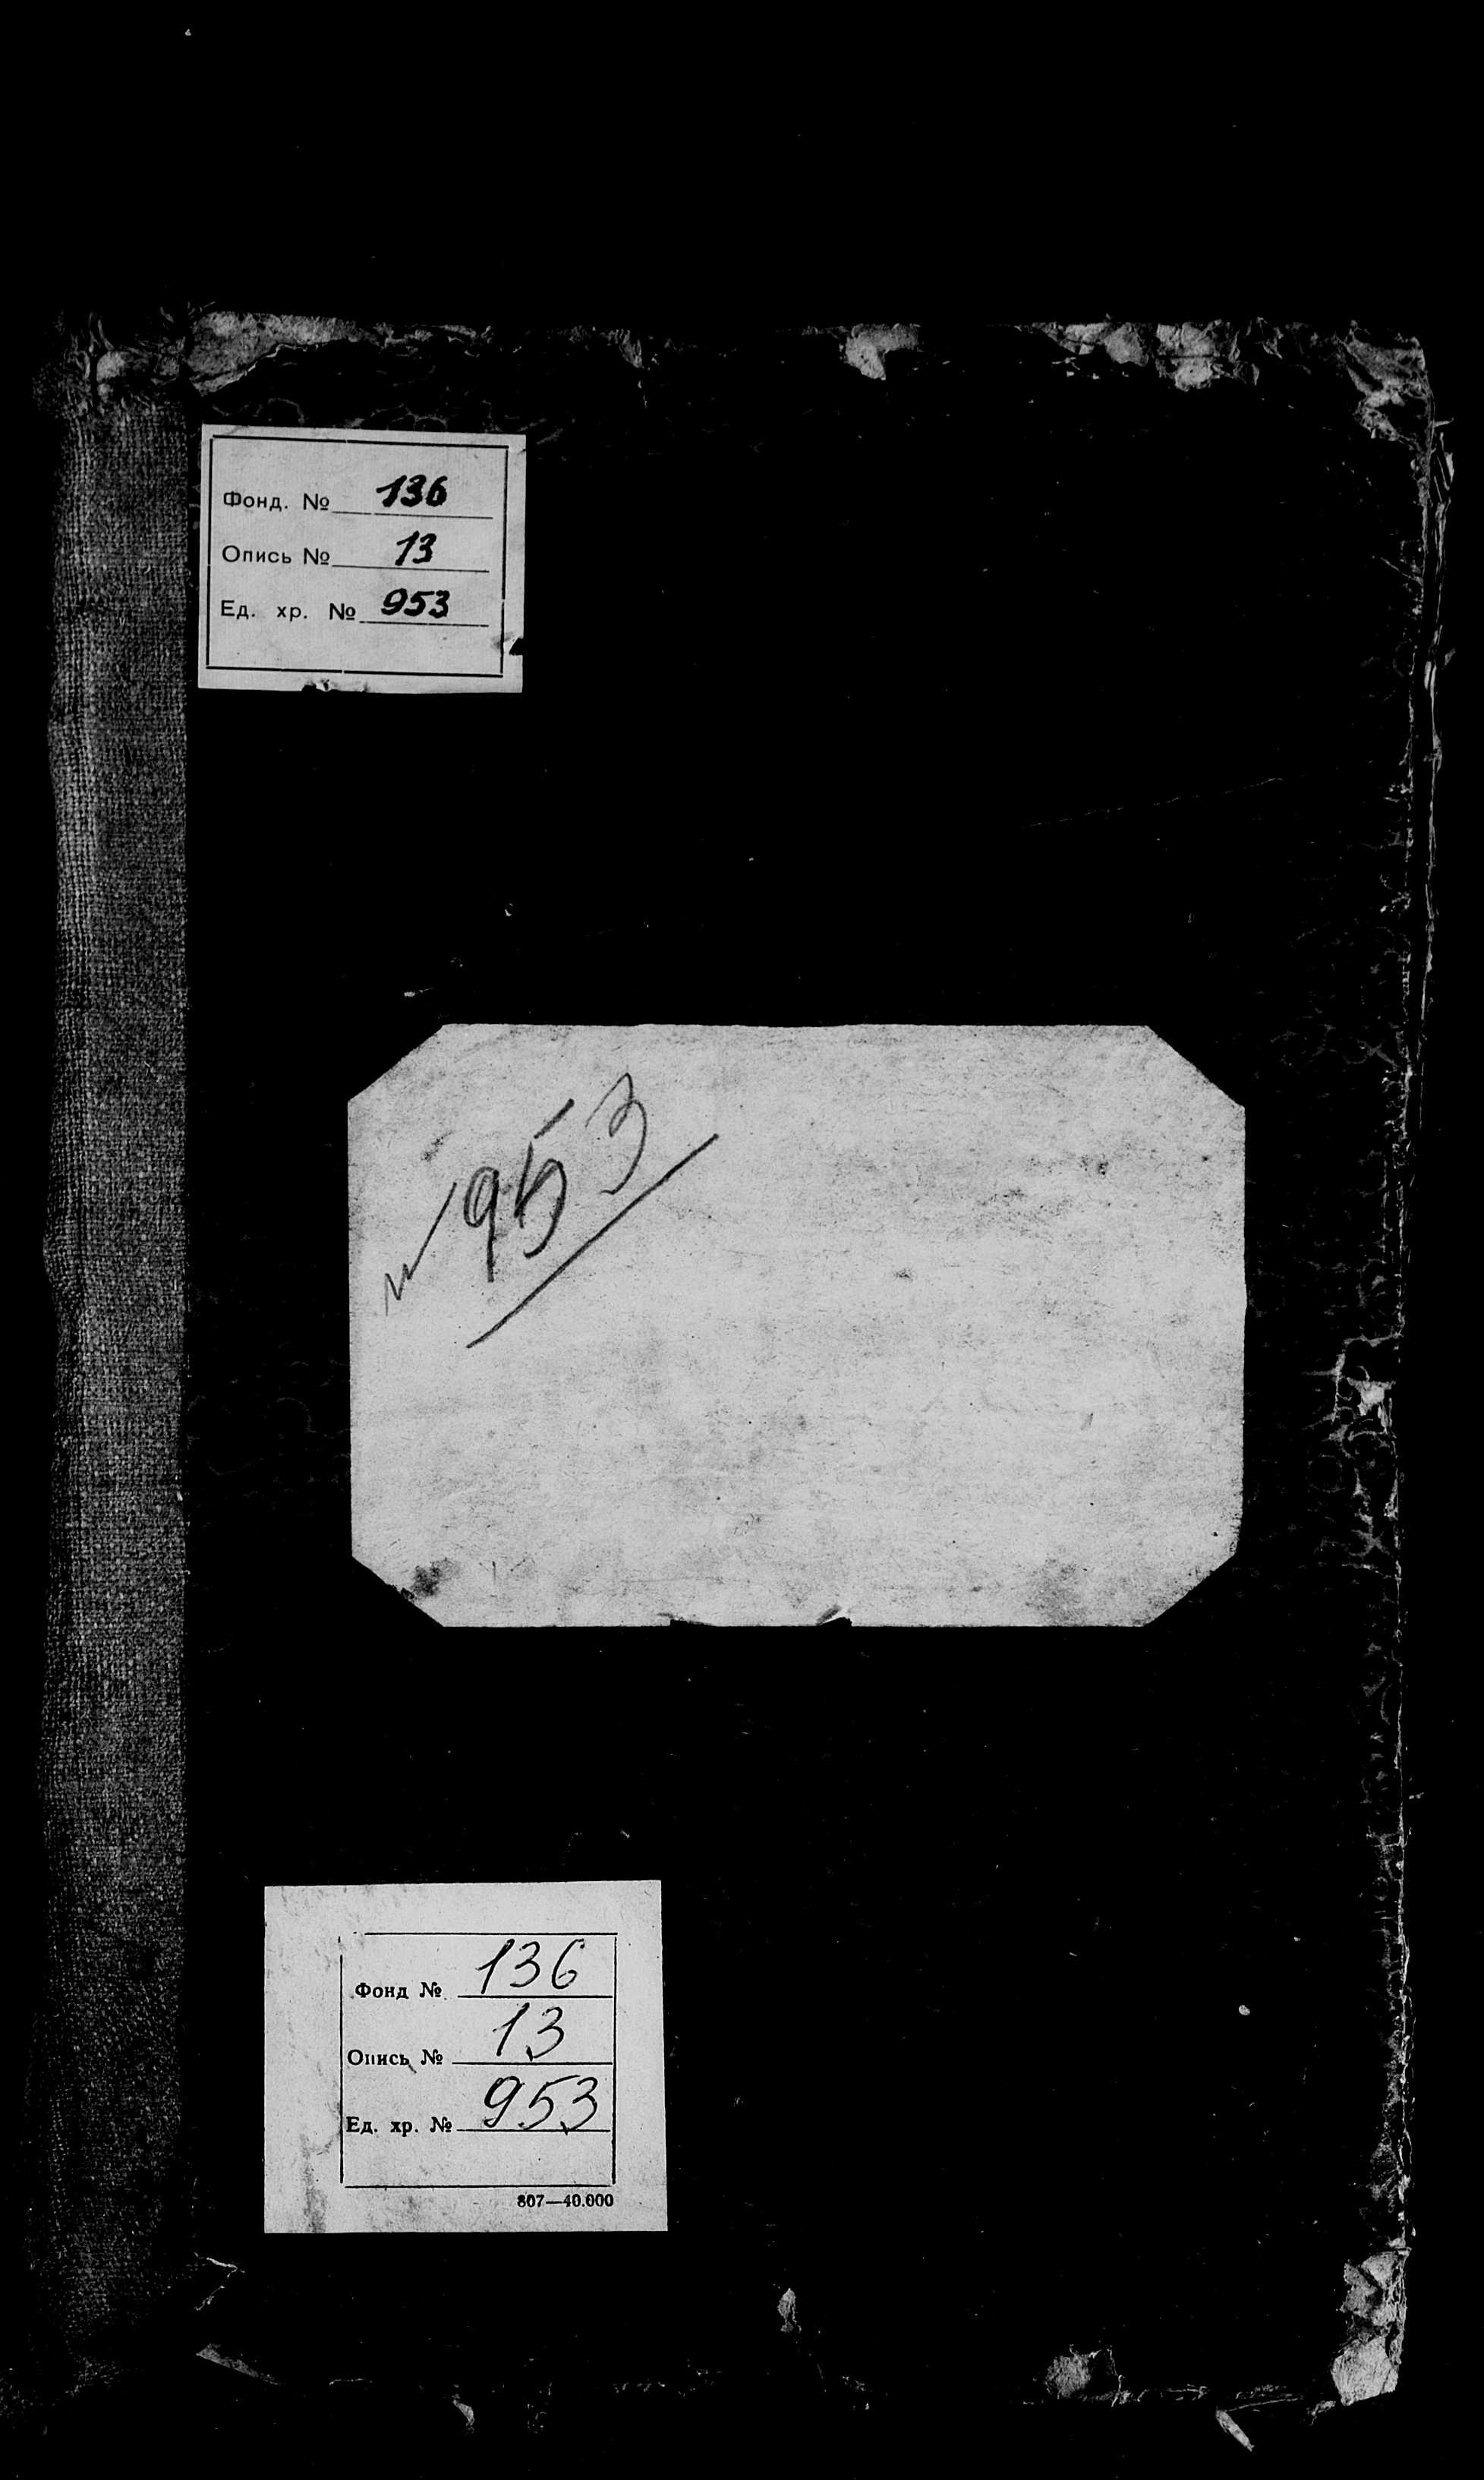 Фонд. № 136
Опись № 13
Ед. хр. № 953
№ 953
Фонд № 136
Опись № 13
Ед. хр. № 953
807—40.000